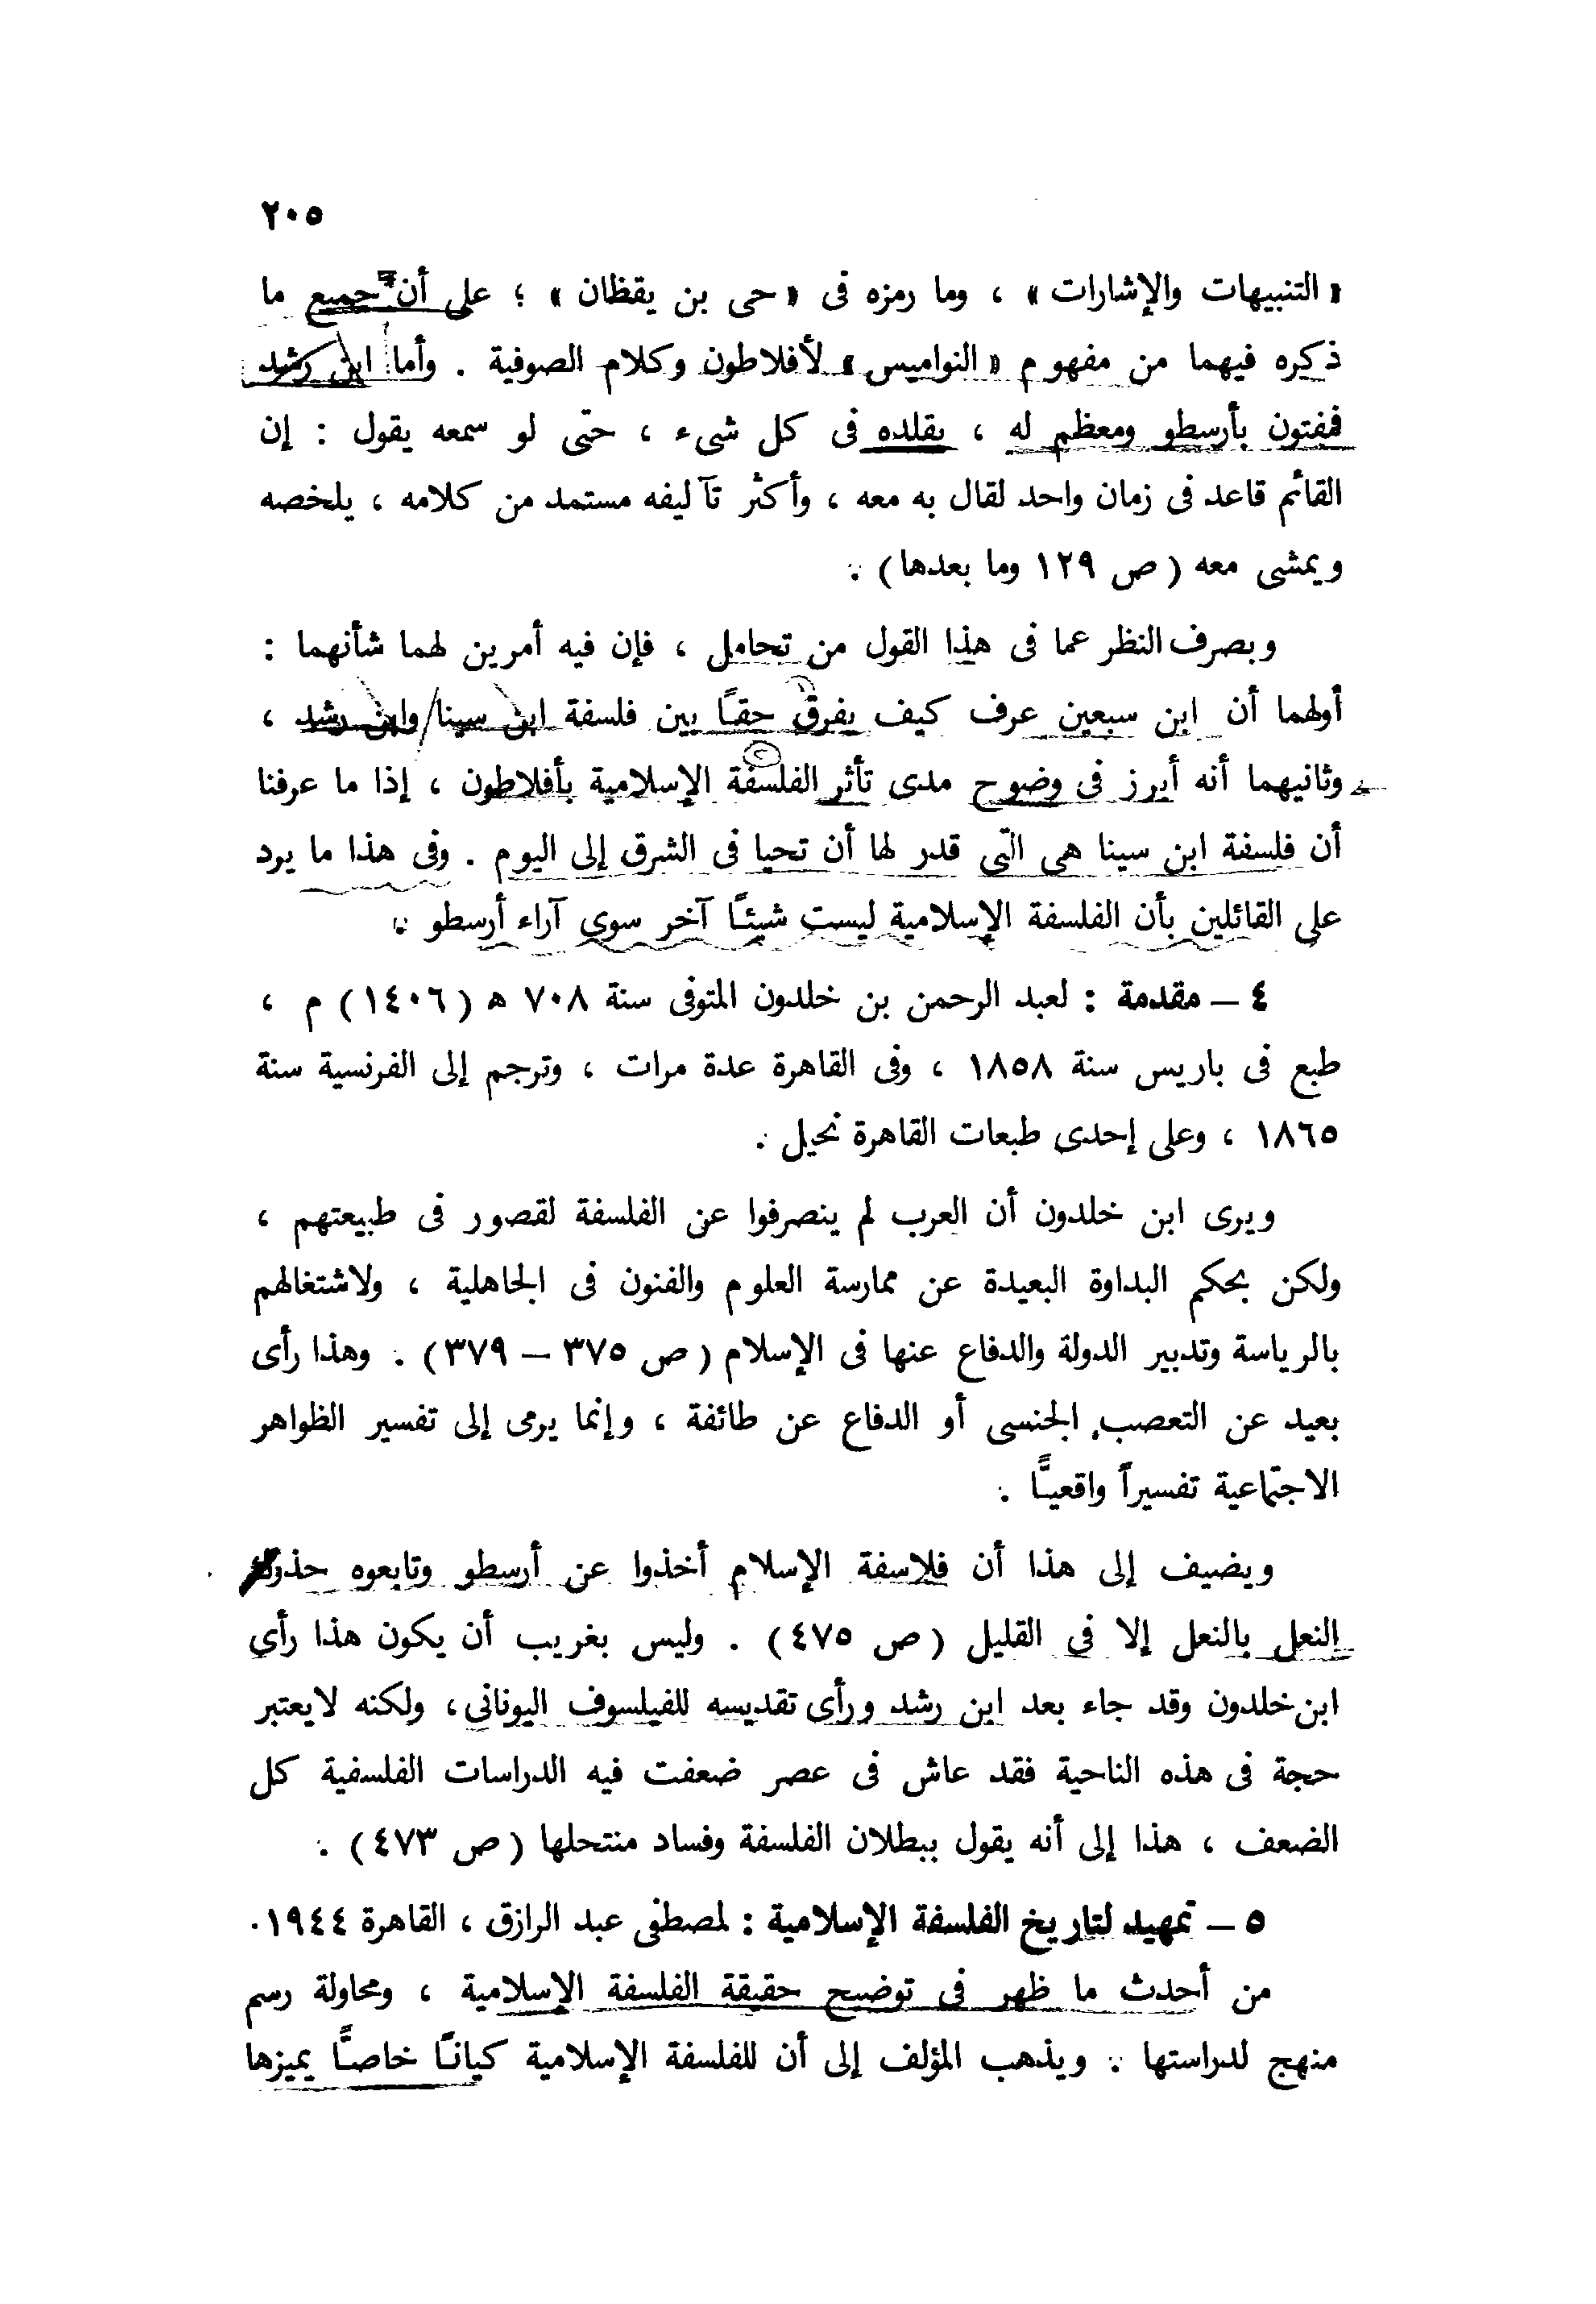 ٢٠٥
« التنبيهات والإشارات » ، وما رمزه فى « حى بن يقظان » ؛ على أن جميع ما
ذكره فيهما من مفهوم « النواميس » لأفلاطون وكلام الصوفية . وأما ابن رشد
فمفتون بأرسطو ومعظم له ، يقلده فى كل شىء ، حتى لو سمعه يقول : إن
القائم قاعد فى زمان واحد لقال به معه ، وأكثر تآليفه مستمد من كلامه ، يلخصه
ويمشى معه ( ص ١٢٩ وما بعدها ) .
وبصرف النظر عما فى هذا القول من تحامل ، فإن فيه أمرين لهما شأنهما :
أولهما أن ابن سبعين عرف كيف يفرق حقًا بين فلسفة ابن سينا وابن رشد ،
وثانيهما أنه أبرز فى وضوح مدى تأثر الفلسفة الإسلامية بأفلاطون ، إذا ما عرفنا
أن فلسفة ابن سينا هى التى قدر لها أن تحيا فى الشرق إلى اليوم . وفى هذا ما يرد
على القائلين بأن الفلسفة الإسلامية ليست شيئًا آخر سوى آراء أرسطو .
٤ – مقدمة : لعبد الرحمن بن خلدون المتوفى سنة ٧٠٨ ه ( ١٤٠٦ ) م ،
طبع فى باريس سنة ١٨٥٨ ، وفى القاهرة عدة مرات ، وترجم إلى الفرنسية سنة
١٨٦٥ ، وعلى إحدى طبعات القاهرة نحيل .
ويرى ابن خلدون أن العرب لم ينصرفوا عن الفلسفة لقصور فى طبيعتهم ،
ولكن بحكم البداوة البعيدة عن ممارسة العلوم والفنون فى الجاهلية ، ولاشتغالهم
بالرياسة وتدبير الدولة والدفاع عنها فى الإسلام ( ص ٣٧٥ – ٣٧٩ ) . وهذا رأى
بعيد عن التعصب الجنسى أو الدفاع عن طائفة ، وإنما يرمى إلى تفسير الظواهر
الاجتماعية تفسيراً واقعيًّا .
ويضيف إلى هذا أن فلاسفة الإسلام أخذوا عن أرسطو وتابعوه حذوك
النعل بالنعل إلا فى القليل ( ص ٤٧٥ ) . وليس بغريب أن يكون هذا رأى
ابن خلدون وقد جاء بعد ابن رشد ورأى تقديسه للفيلسوف اليونانى ، ولكنه لا يعتبر
حجة فى هذه الناحية فقد عاش فى عصر ضعفت فيه الدراسات الفلسفية كل
الضعف ، هذا إلى أنه يقول ببطلان الفلسفة وفساد منتحلها ( ص ٤٧٣ ) .
٥ – تمهيد لتاريخ الفلسفة الإسلامية : لمصطفى عبد الرازق ، القاهرة ١٩٤٤ .
من أحدث ما ظهر فى توضيح حقيقة الفلسفة الإسلامية ، ومحاولة رسم
منهج لدراستها . ويذهب المؤلف إلى أن للفلسفة الإسلامية كيانًا خاصًّا يميزها